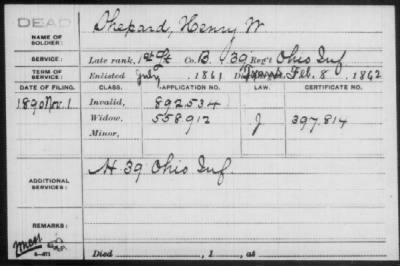 DEAD
NAME OF SOLDIER: Shepard, Henry W
SERVICE: Late rank, 1st Lt Co. B, 39 Reg't Ohio Inf
TERM OF SERVICE: Enlisted July, 1861 Feb. 8, 1862
DATE OF FILING. CLASS. APPLICATION NO. LAW. CERTIFICATE NO.
1890 Nov. 1 Invalid, 892.534
Widow, 558.912 J 397.814
Minor,
ADDITIONAL SERVICES: H 39 Ohio Inf.
REMARKS:
Died , 1 , at